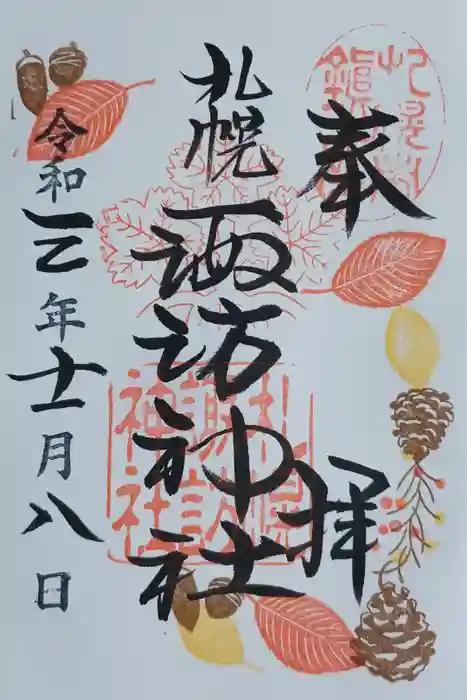 奉拝
札幌諏訪神社
令和三年十一月八日
札幌
諏訪
神社